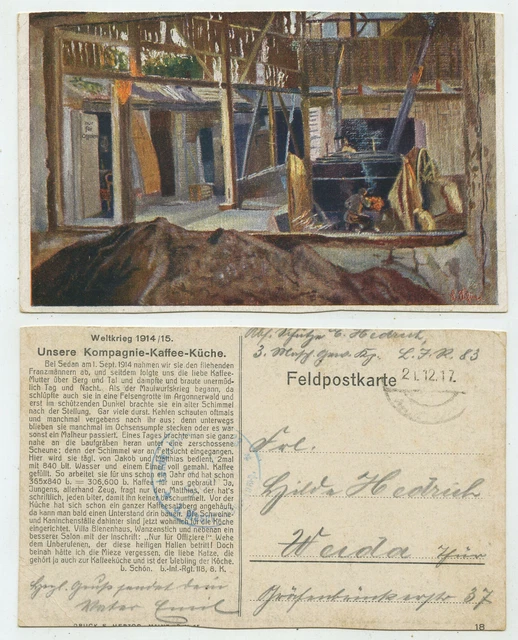 Weltkrieg 1914/15.
Unsere Kompagnie-Kaffee-Küche.
Bei Sedan am 1. Sept. 1914 nahmen wir sie den fliehenden
Franzmännern ab, und seitdem folgte uns die liebe Kaffee-
Mutter über Berg und Tal und dampfte und braute unermüd-
lich Tag und Nacht. Als der Maulwurfskrieg begann, da
schlüpfte auch sie in eine Felsengrotte im Argonnerwald und
erst im schützenden Dunkel brachte sie ein alter Schimmel
nach der Stellung. Gar viele durst. Kehlen schauten oftmals
und manchmal vergebens nach ihr aus; denn unterwegs
blieben sie manchmal im Ochsensumpfe stecken oder es war
sonst ein Malheur passiert. Eines Tages brachte man sie ganz
nahe an die Laufgräben heran unter eine zerschossene
Scheune; denn der Schimmel war an Fettsucht eingegangen.
Hier wird sie tägl. von Jakob und Matthias bedient, 2mal
mit 840 blt. Wasser und einem Eimer voll gemahl. Kaffee
gefüllt. So arbeitet sie für uns schon ein Jahr und hat schon
365x840 b. = 306,600 b. Kaffee für uns gebraut! Ja,
Jungens, allerhand Zeug, fragt nur den Matthias, der hat's
schriftlich, jeden biter, damit ihn keiner beschummelt. Vor der
Küche hat sich schon ein ganzer Kaffeeberg angehäuft,
da kann man bald einen Unterstand drin bauen. Die Schweine-
und Kaninchenställe dahinter sind jetzt wohnlich für die Köche
eingerichtet. Villa Bienenhaus, Wanzenstich und nebenan ein
besserer Salon mit der Inschrift: „Nur für Offiziere!". Wehe
den Unberufenen, der diese heiligen Hallen betritt! Doch
beinah hätte ich die Mieze vergessen, die liebe Katze, die
gehört ja auch zur Kaffeeküche und ist der Liebling der Köche.
b. Schön. b.-Inf.-Rgt. 118, 8. K.
Herzl. Gruß sendet dein
Vater Emil
Abs. Schütze E. Hedrich,
3. Masch. Gew. Kp. L.I.R. 83
Feldpostkarte
21.12.17.
Frl.
Hilde Hedrich
Weida Thür
37
18